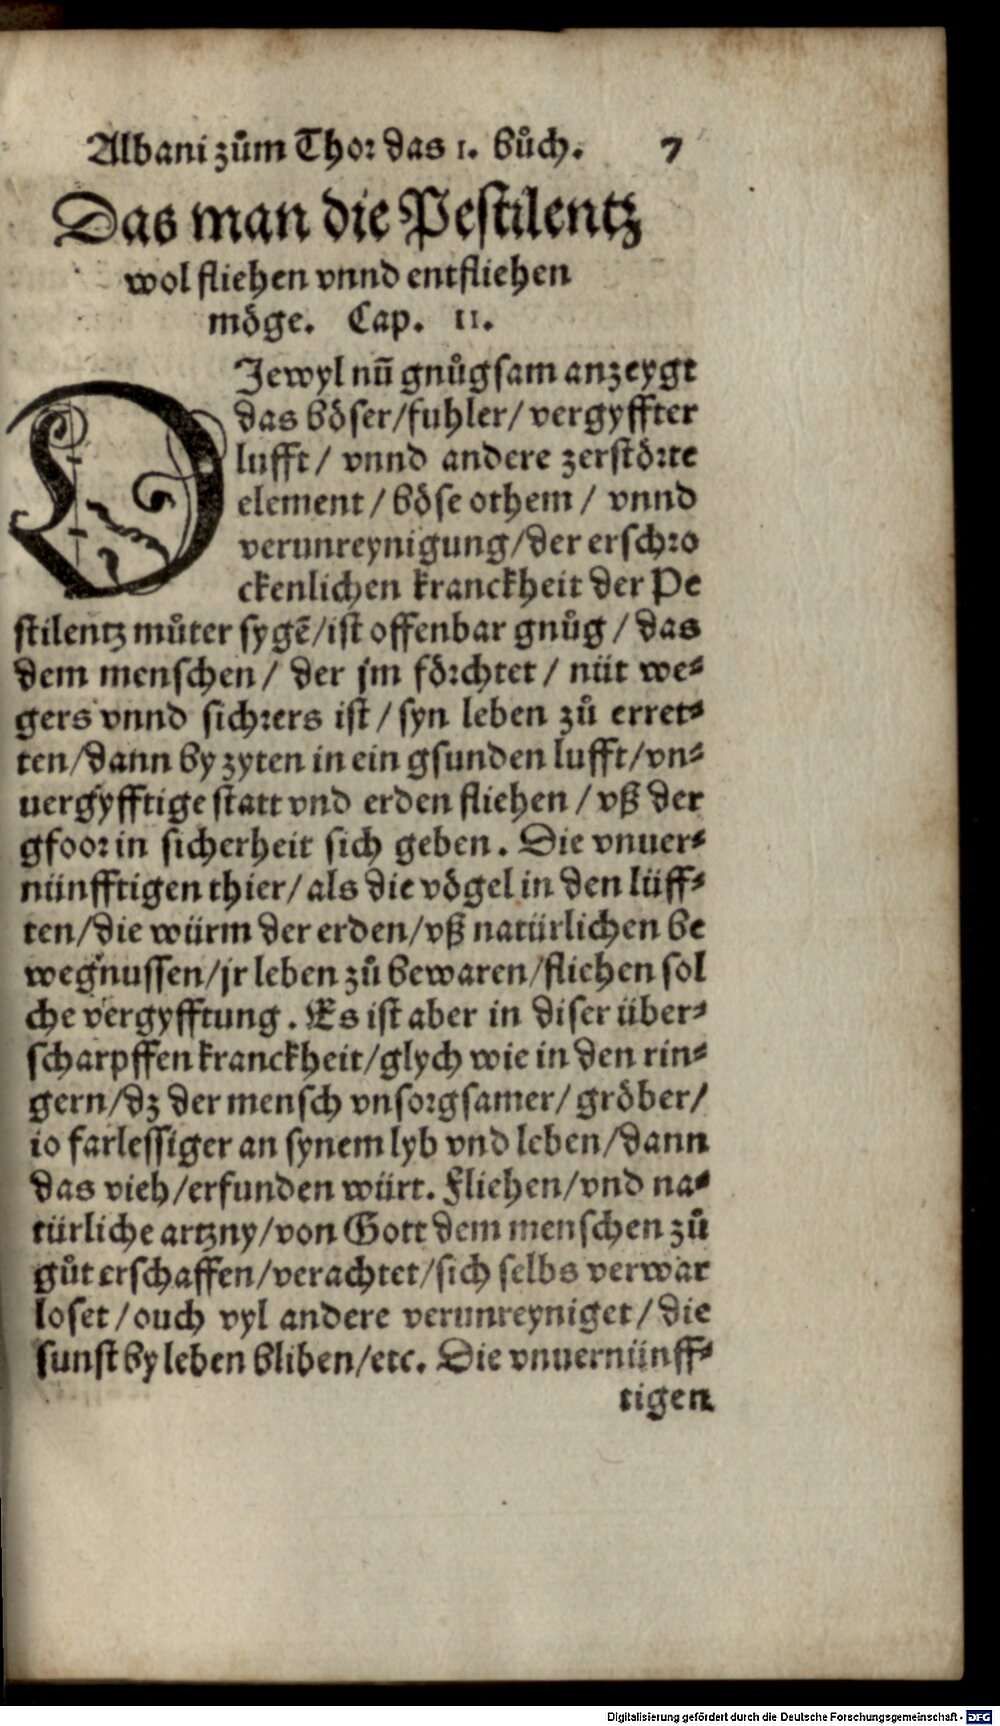 Albani zům Thor das 1. bůch. 7
Das man die Pestilentz
wol fliehen vnnd entfliehen
möge. Cap. II.
DIewyl nū gnůgsam anzeygt
das böser/fuhler/ vergyffter
lufft/ vnnd andere zerstörte
element/böse othem/ vnnd
verunreynigung/der erschro
ckenlichen kranckheit der Pe
stilentz můter sygē/ist offenbar gnůg/das
dem menschen/ der jm förchtet/ nüt we⸗
gers vnnd sichrers ist/syn leben zů erret⸗
ten/dann by zyten in ein gsunden lufft/vn⸗
uergyfftige statt vnd erden fliehen/vß der
gfoor in sicherheit sich geben. Die vnuer⸗
nünfftigen thier/als die vögel in den lüff⸗
ten/die würm der erden/vß natürlichen be
wegnussen/jr leben zů bewaren/fliehen sol
che vergyfftung. Es ist aber in diser über⸗
scharpffen kranckheit/glych wie in den rin⸗
gern/dz der mensch vnsorgsamer/gröber/
io farlessiger an synem lyb vnd leben/dann
das vieh/erfunden würt. Fliehen/vnd na⸗
türliche artzny/von Gott dem menschen zů
gůt erschaffen/verachtet/sich selbs verwar
loset/ouch vyl andere verunreyniget/die
sunst by leben bliben/etc. Die vnuernünff⸗
tigen
Digitalisierung gefördert durch die Deutsche Forschungsgemeinschaft - DFG